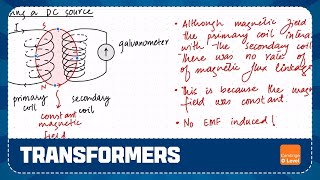 ing a DC source
I
S
N
galvanometer
primary coil
secondary coil
constant magnetic field
• Although magnetic field
the primary coil intera
with the secondary coil
there was no rate of
of magnetic flux linkage
• This is because the mag
field was constant.
• No EMF induced!
TRANSFORMERS
Cambridge
O Level